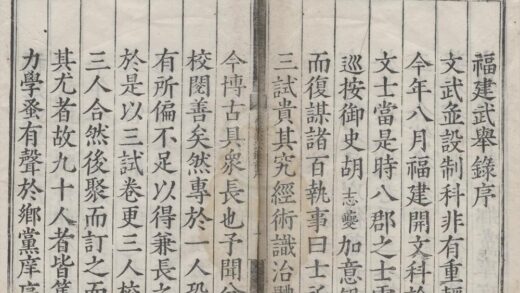 福建武舉錄序
文武並設制科非有重輕
今年八月福建開文科於
文士當是時八郡之士雲
巡按御史胡志夔加意
而復謀諸百執事曰士
三試貴其究經術識治
今博古具衆長也予聞
校閱善矣然專於一人恐
有所偏不足以得兼長之
於是以三試卷更三人校
三人合然後聚而訂之而
其尤者故九十人者皆篤
力學蚤有聲於鄉黨庠序